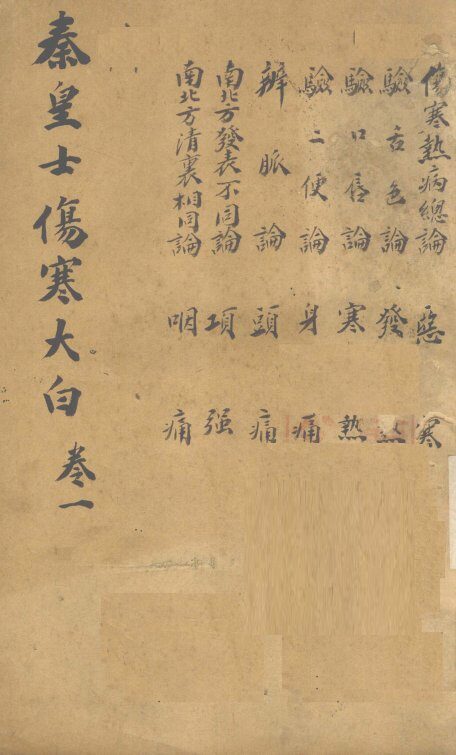 傷寒熱病總論 惡寒
驗舌色論 發熱
驗口唇論 寒熱
驗二便論 身痛
辨脈論 頭痛
南北方發表不同論 項强
南北方清裏相同論 咽痛
秦皇士傷寒大白 卷一